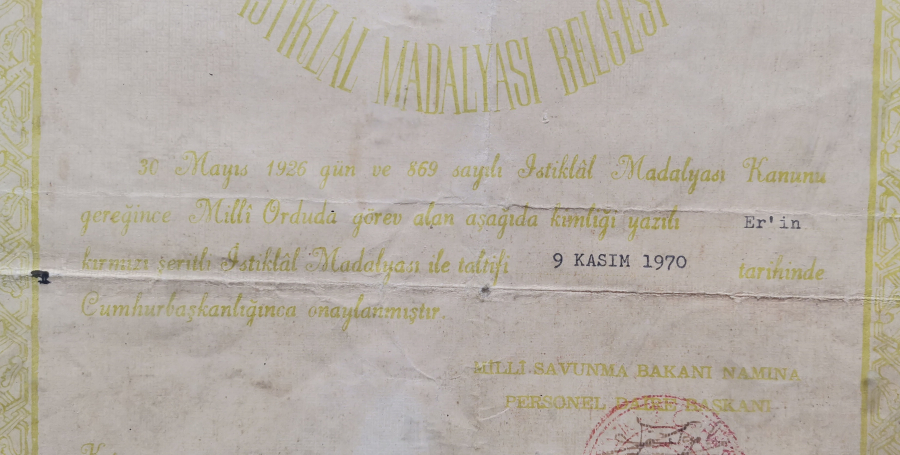 İSTİKLÂL MADALYASI BELGESİ
30 Mayıs 1926 gün ve 869 sayılı İstiklâl Madalyası Kanunu
gereğince Millî Orduda görev alan aşağıda kimliği yazılı Er'in
kırmızı şeritli İstiklâl Madalyası ile taltifi 9 KASIM 1970 tarihinde
Cumhurbaşkanlığınca onaylanmıştır.
MİLLÎ SAVUNMA BAKANI NAMINA
PERSONEL DAİRE BAŞKANI